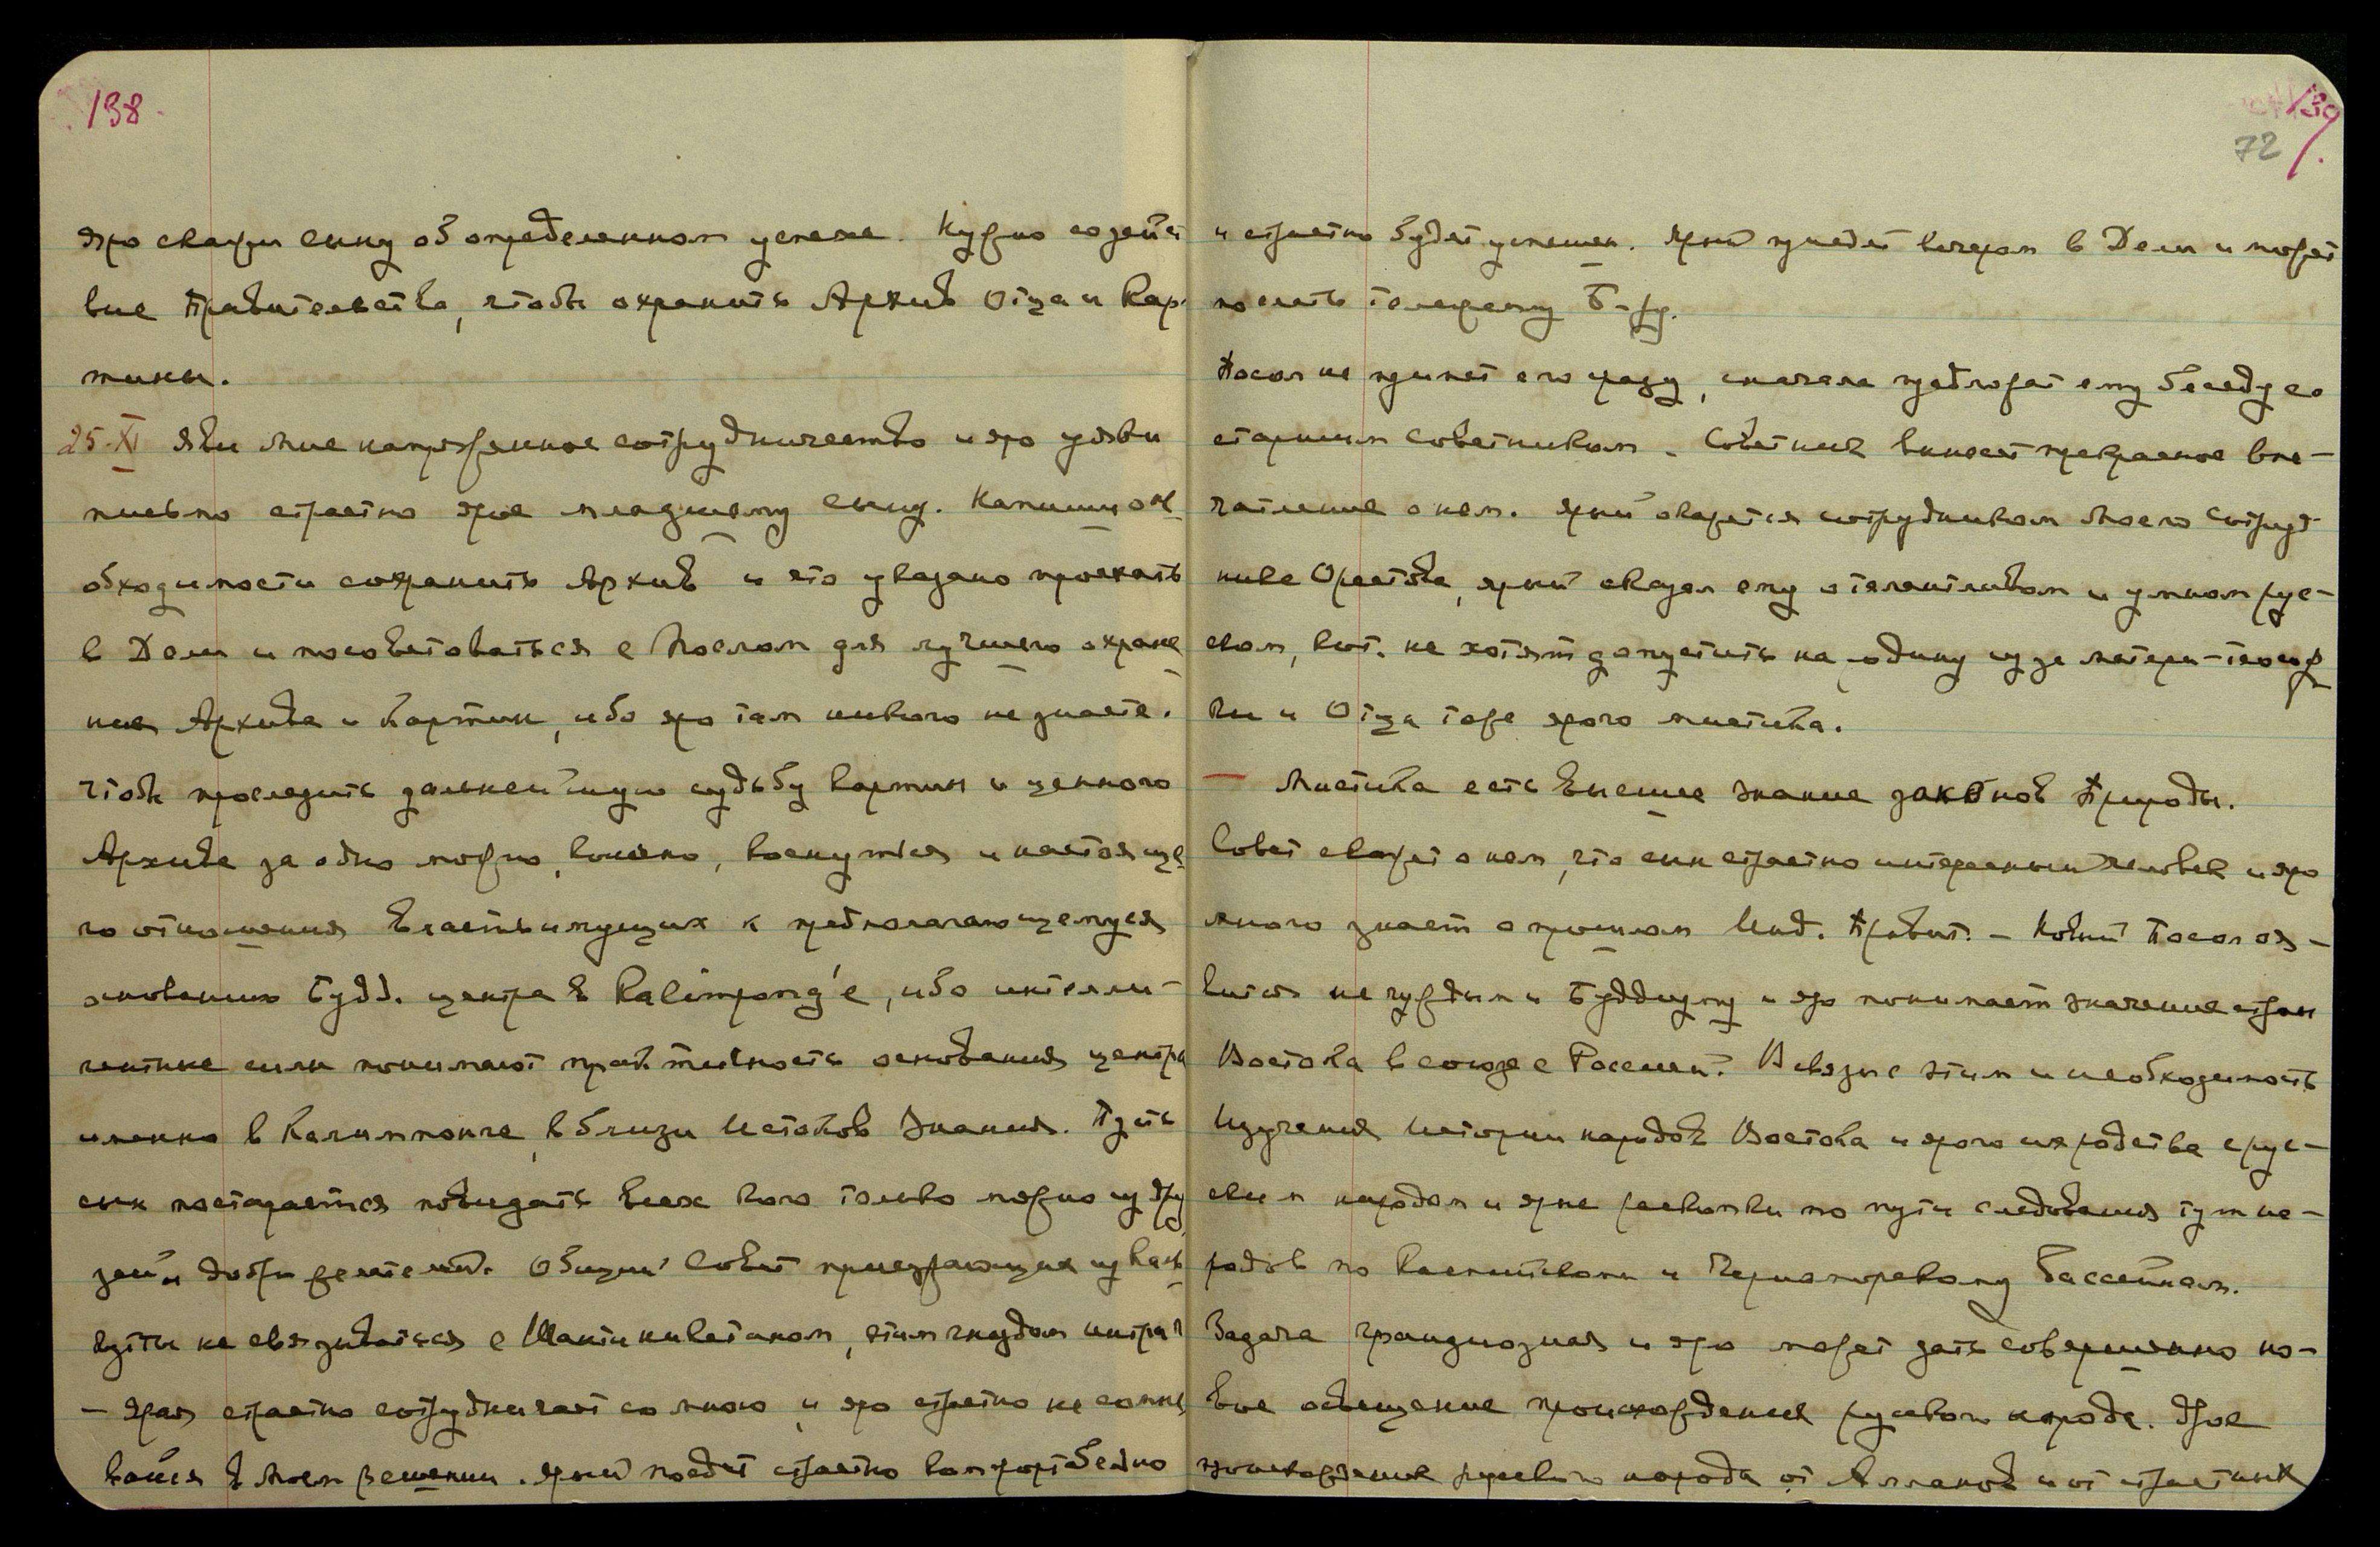 138.
яро скажи сыну об определенном успехе. Нужно содейст
вие Правительства, чтобы охранить Архив Отца и Кар-
тины.
25-XI Яви Мне напряженное сотрудничество и яро уяви
письмо страстно ярое младшему сыну. Напиши о не
обходимости сохранить Архив и что указано проехать
в Дели и посоветоваться с Послом для лучшего охране
ния Архива и Картин, ибо яро там никого не знаете.
Чтобы проследить дальнейшую судьбу картин и ценного
Архива за одно можно, конечно, коснуться и настояще
го отношения власть имущих к предполагающемуся
основанию Будд. центра в Kalimpong'e, ибо интелли-
гентные силы понимают практичность основания центра
именно в Калимпонге, вблизи Истоков Знания. Пусть
сын постарается повидать всех кого только можно из дру
зей и доброжелателей. Общий Совет приезжающих из Каль
кутты не связываться с Шантиникетаном, этим гнездом интриг
— Ярая страстно сотрудничает со мною и яро страстно не сомне
вайся в Моем Решении. Ярый поедет страстно комфортабельно
139.
72
и страстно будет успешен. Ярый приедет вечером в Дели и может
послать телеграмму Б-ду.
Посол не примет его сразу, сначала предложат ему беседу со
старшим советником. Советник вынесет прекрасное впе-
чатление о нем. Ярый окажется сотрудником Моего Сотруд-
ника Орестова, ярый сказал ему о талантливом и умном рус-
ском, кот. не хотят допустить на родину из за матери-теософ
ки и Отца тоже ярого мистика.
— Мистика есть Высшее Знание законов Природы.
Совет скажет о нем, что сын страстно интересный человек и яро
много знает о прошлом Инд. Правит. — Новый Посол оя-
вится не чуждым и Буддизму и яро понимает значение стран
Востока в союзе с Россией. В связи с этим и необходимость
Изучения Истории народов Востока и ярого их родства с рус-
ским народом и ярые раскопки по пути следования тут на-
родов по Каспийскому и Черноморскому Бассейнам.
Задача грандиозная и яро может дать совершенно но-
вое освещение происхождения русского народа. Ярое
происхождения русского народа от Алланов и от страстных